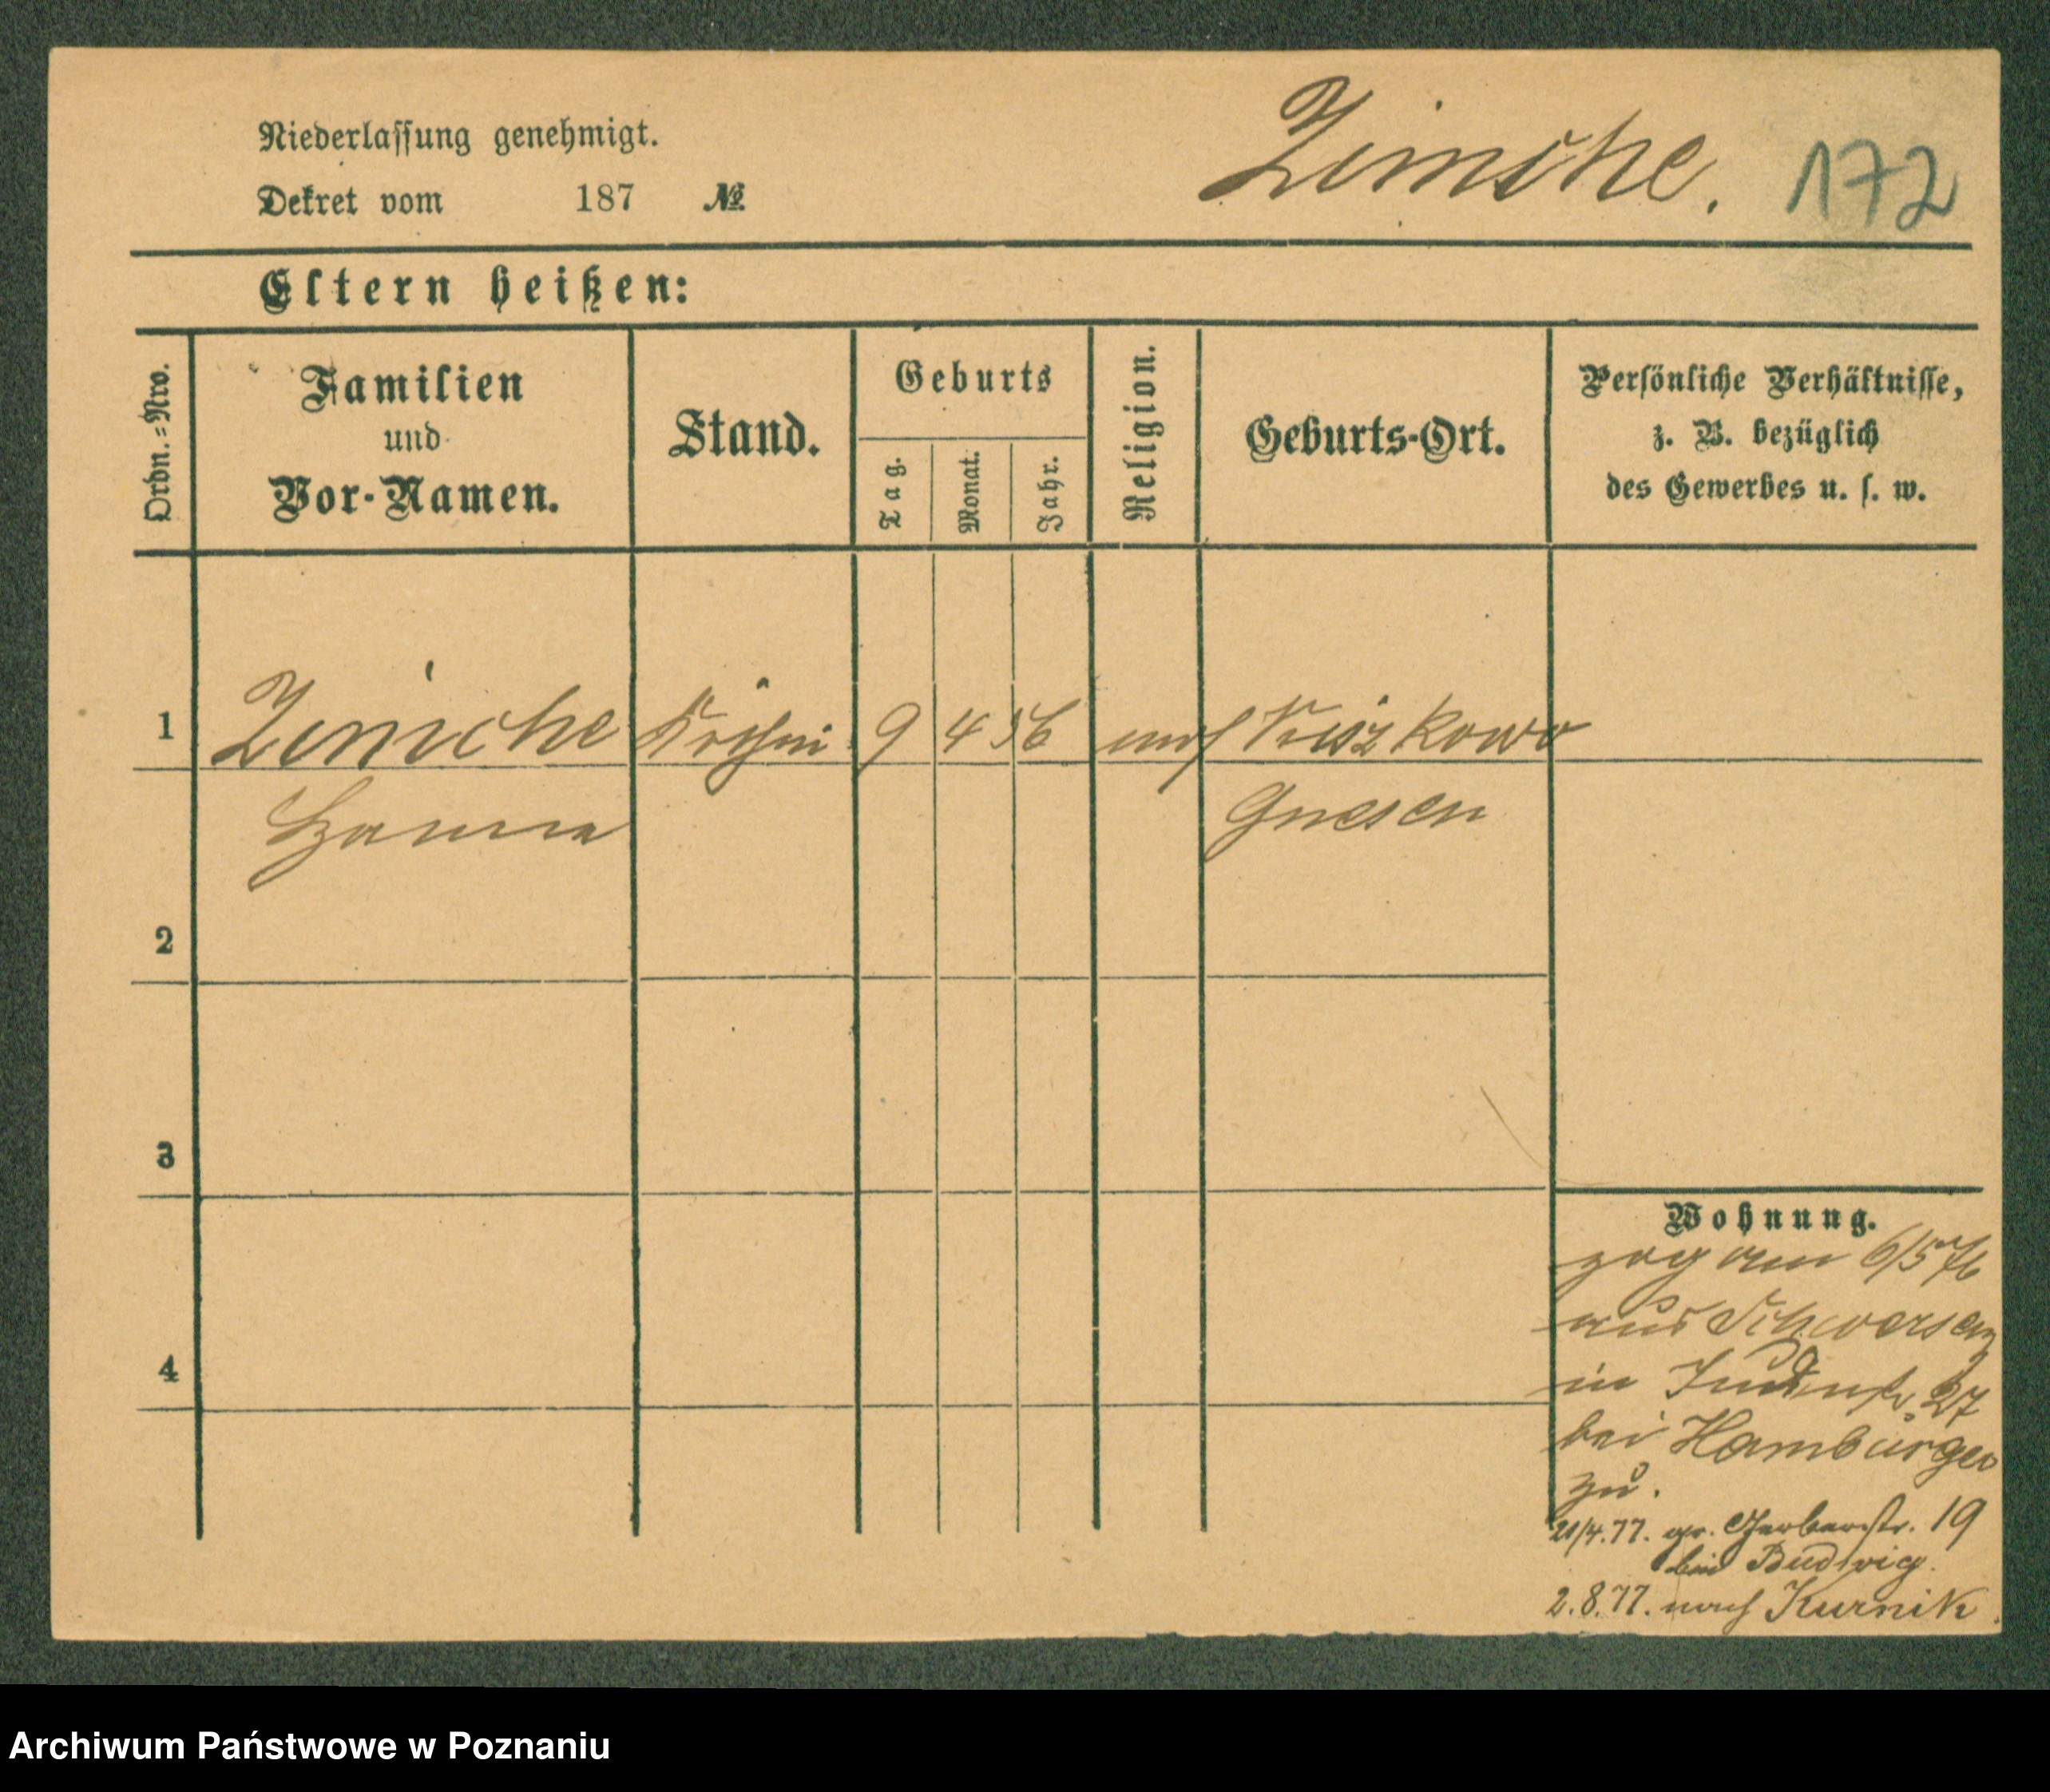 Niederlaſſung genehmigt.
Zimche. 172
Dekret vom 187 №
Eltern heißen:
Ordn.=Nro.
Familien und Vor-Namen.
Stand.
Geburts
Tag. Monat. Jahr.
Religion.
Geburts-Ort.
Perſönliche Verhältniſſe,
z. B. bezüglich
des Gewerbes u. ſ. w.
1 9 4 56
Gnesen
2
3
4
Wohnung.
zog am 6/5 76
aus Schwersenz
in 27
bei Hamburger
zu.
21/4.77. gr. Gerberstr. 19
bei Budwig.
2.8.77. nach Kurnik.
Archiwum Państwowe w Poznaniu